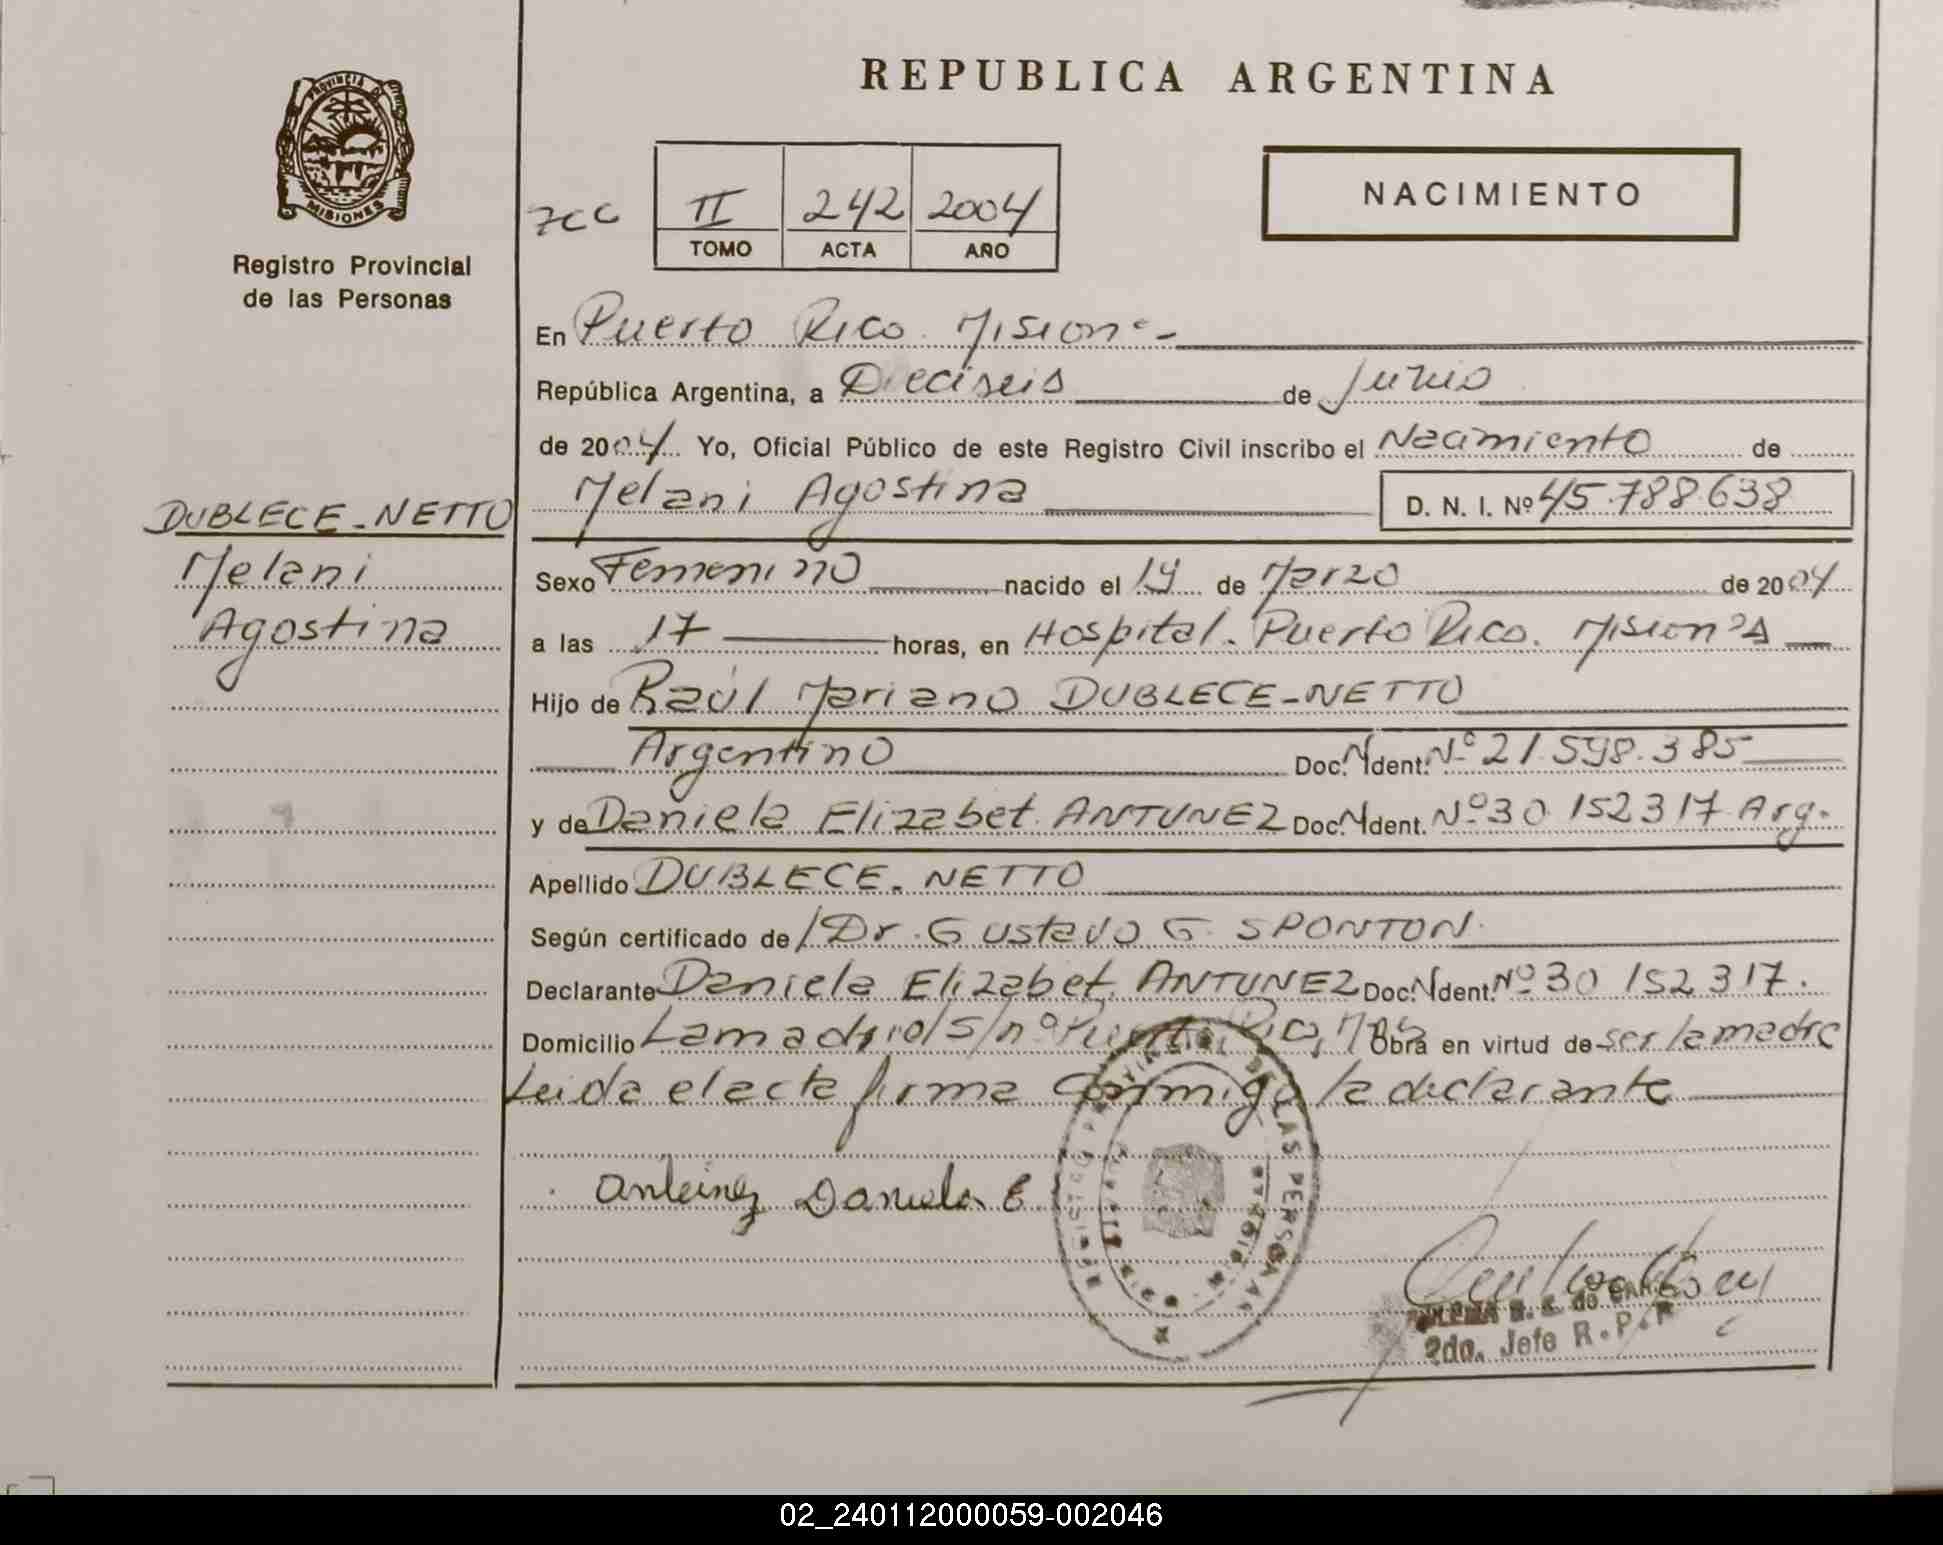 REPUBLICA ARGENTINA
PROVINCIA DE
MISIONES
Registro Provincial
de las Personas
7CC
II 242 2004
TOMO ACTA AÑO
NACIMIENTO
En Puerto Rico. Misiones-
República Argentina, a Dieciseis de Junio
de 2004 Yo, Oficial Público de este Registro Civil inscribo el Nacimiento de
Melani Agostina D. N. I. Nº 45.788.638
DUBLECE-NETTO
Melani
Agostina
Sexo Femenino nacido el 19 de Marzo de 2004
a las 17 horas, en Hospital. Puerto Rico. Misiones
Hijo de Raúl Mariano DUBLECE-NETTO
Argentino Doc. N Ident. Nº 21.598.385
y de Daniela Elizabet ANTUNEZ Doc. N Ident. Nº 30 152 317 Arg.
Apellido DUBLECE-NETTO
Según certificado de Dr. Gustavo G. SPONTON
Declarante Daniela Elizabet ANTUNEZ Doc. N Ident. Nº 30 152 317.
Domicilio Lamadrid s/nº Puerto Rico, Obra en virtud de ser la madre
Leida el acta firma conmigo la declarante
Antúnez Daniela E
2do. Jefe R.P.P
02_240112000059-002046